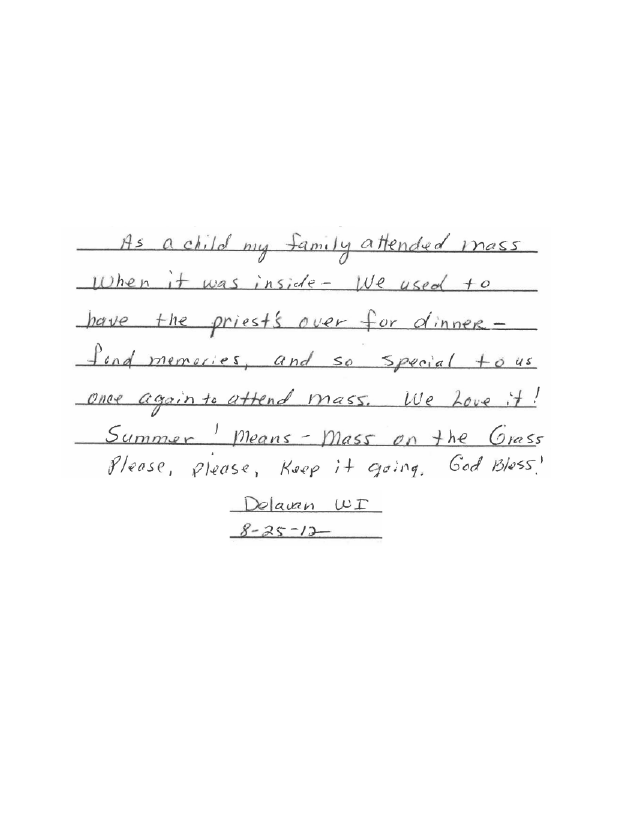 As a child my family attended mass
When it was inside - We used to
have the priest's over for dinner -
fond memories, and so special to us
once again to attend mass. We Love it!
Summer ! Means - Mass on the Grass
Please, please, Keep it going. God Bless!
Delavan WI
8-25-12